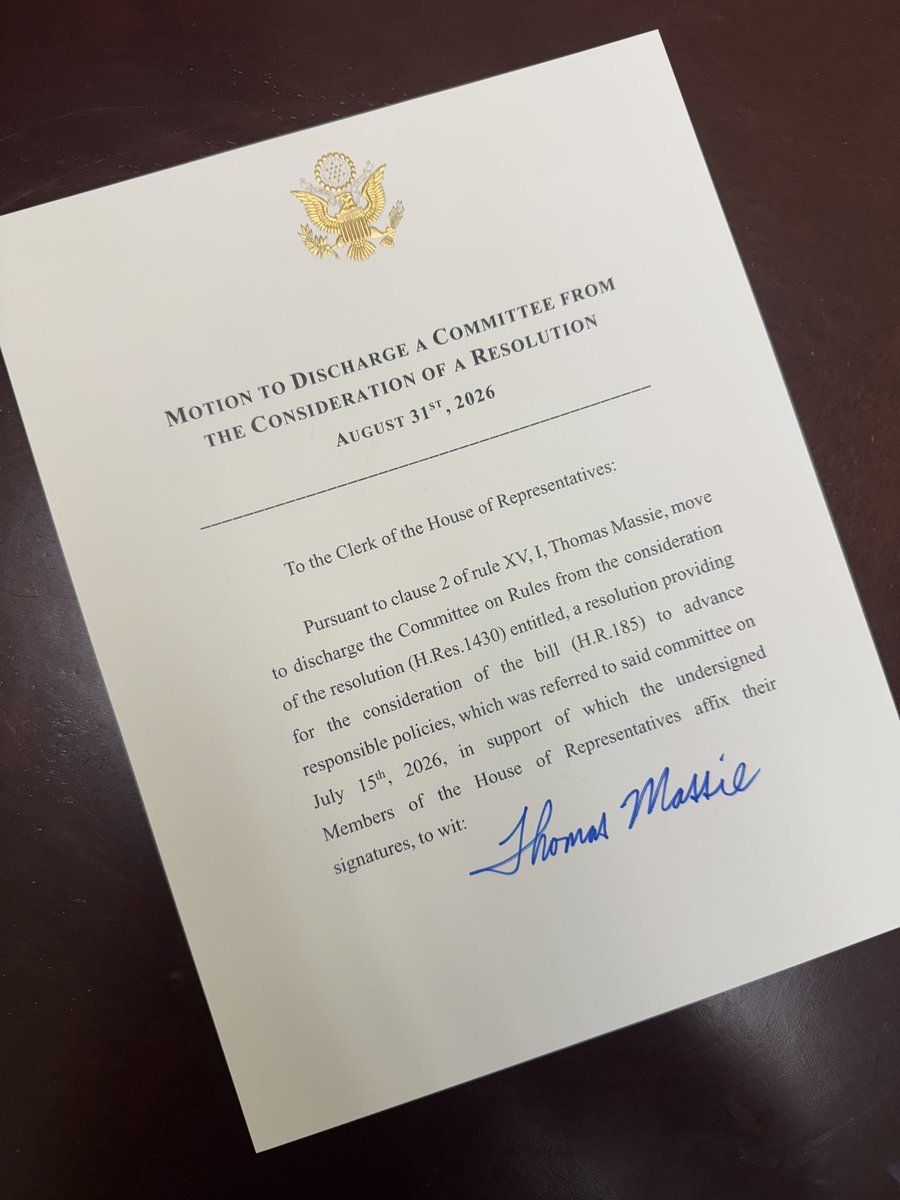 MOTION TO DISCHARGE A COMMITTEE FROM
THE CONSIDERATION OF A RESOLUTION
AUGUST 31ST, 2026
To the Clerk of the House of Representatives:
Pursuant to clause 2 of rule XV, I, Thomas Massie, move
to discharge the Committee on Rules from the consideration
of the resolution (H.Res.1430) entitled, a resolution providing
for the consideration of the bill (H.R.185) to advance
responsible policies, which was referred to said committee on
July 15th, 2026, in support of which the undersigned
Members of the House of Representatives affix their
signatures, to wit:
Thomas Massie